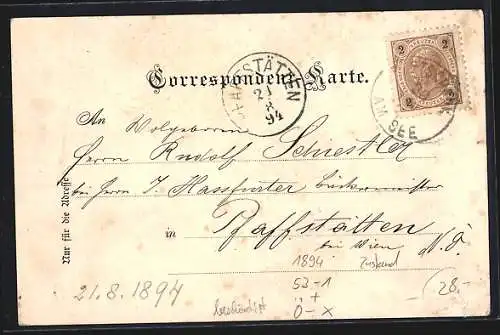 Correspondenz-Karte.
PFAFFSTÄTTEN
21
8
94
2 2
2 2
AM SEE
An Wolgeboren
Herrn Rudolf Schiestler
bei Herrn J. Hassfurter Bäckermeister
in Pfaffstätten
bei Wien N.Ö.
Nur für die Adresse
1894 Zustand
53-1
+
Ö-X
28.-
21.8.1894
beschädigt